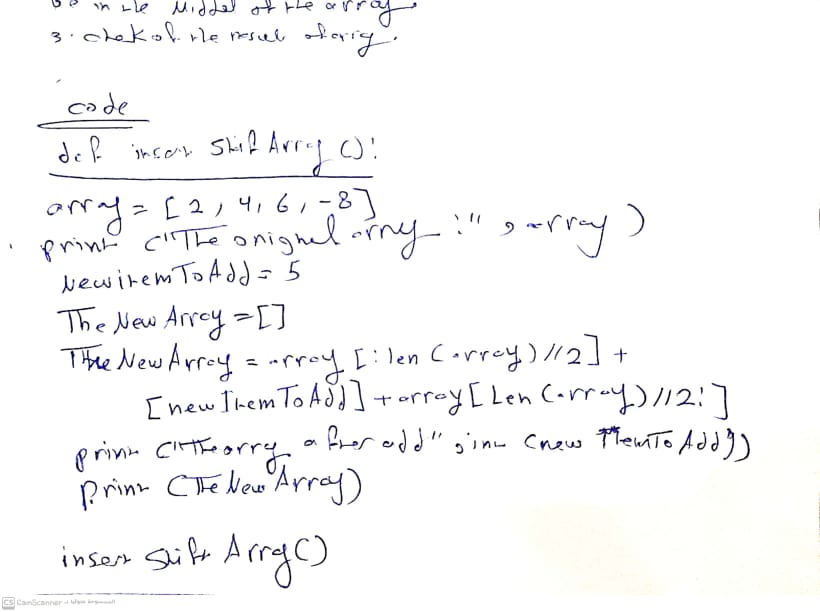 in the Middel of the array.
3. chek of the resul of array.
code
def insert Shift Array ():
array = [2, 4, 6, -8]
print ("The orignel array :" , array )
NewitemToAdd = 5
The New Array = []
The New Array = array [: len (array) //2] +
[new Item To Add] + array [ Len (array) //2: ]
print ("The array after add" , int (new ItemTo Add))
Print (The New Array)
insert Shift Array ()
CS CamScanner